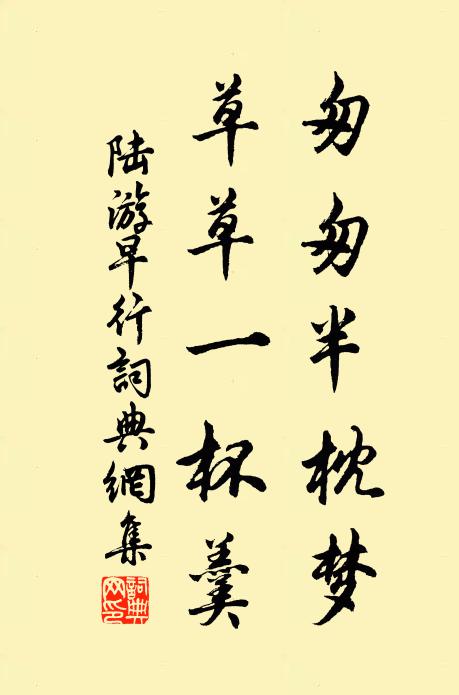 匆匆半枕梦
草草一杯羹
陆游早行詞典網集
詞典网印